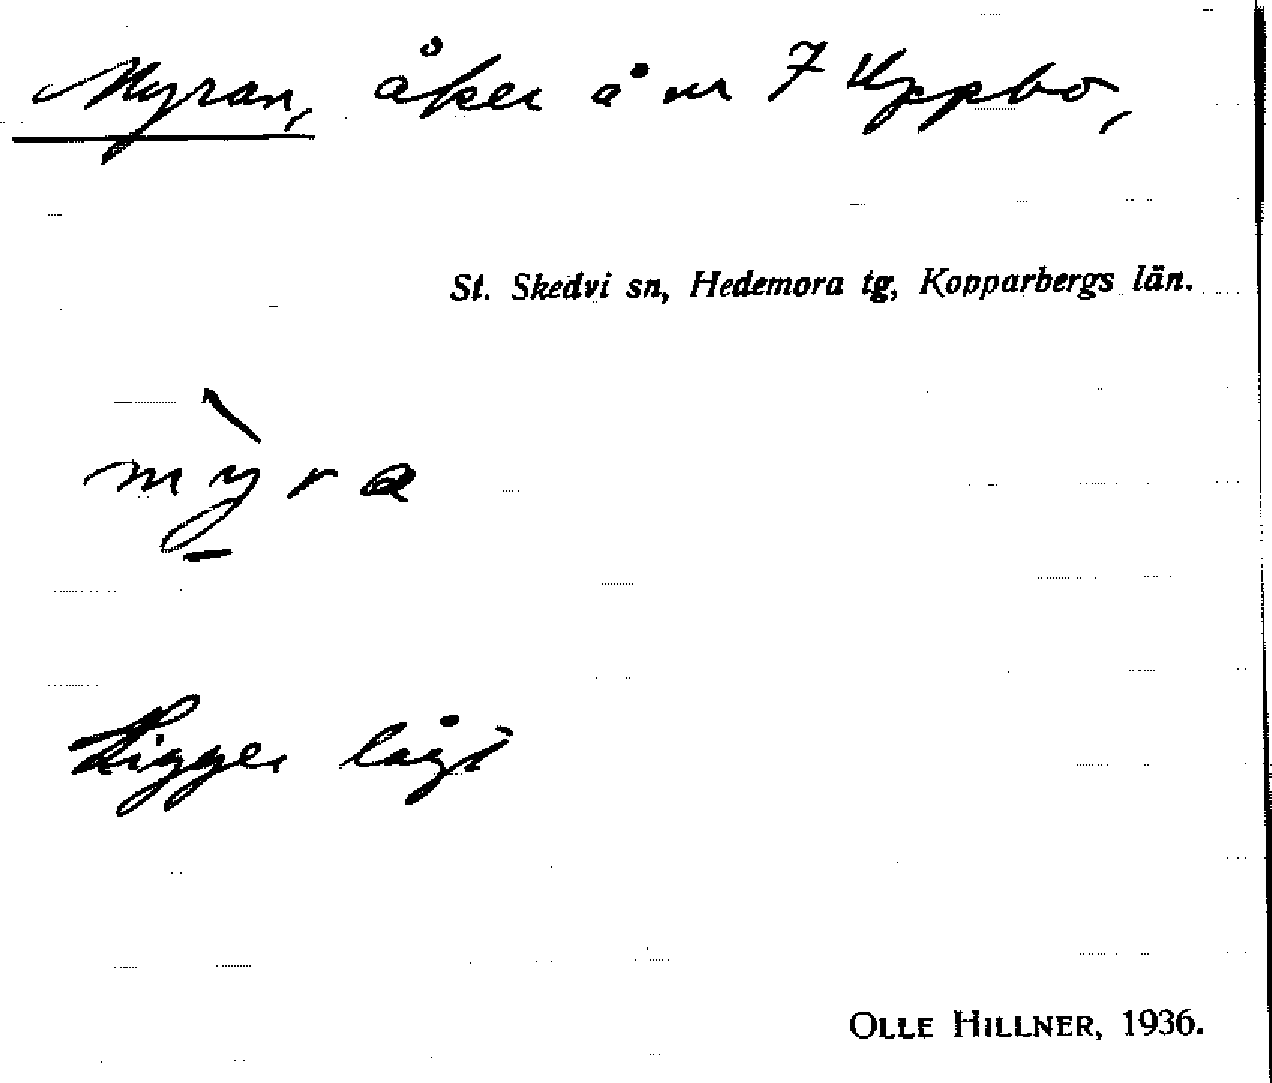 Myran, åker å nr 7 Uppbo,
St. Skedvi sn, Hedemora tg, Kopparbergs län.
mỳ̱ra
Ligger lågt
OLLE HILLNER, 1936.